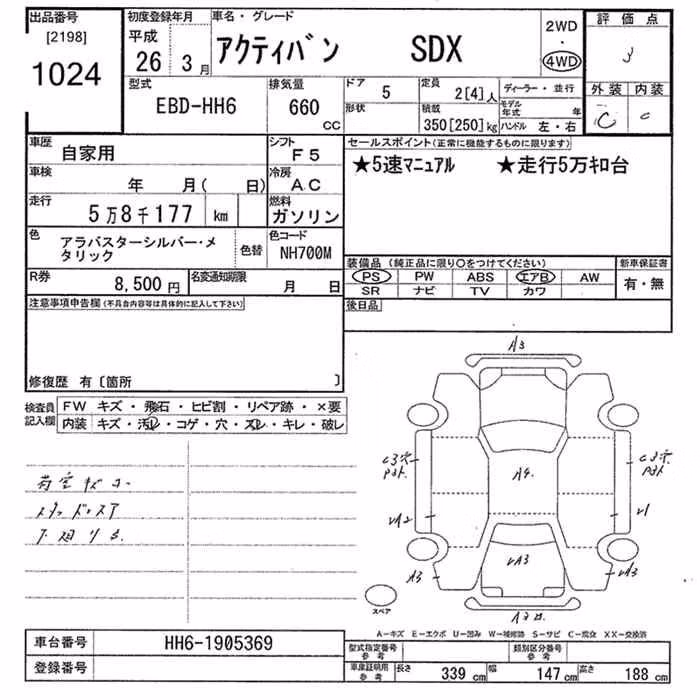 出品番号
[2198]
1024
初度登録年月
平成
26 3月
車名・グレード
アクティバン SDX
2WD
・
4WD
評価点
3
外装 内装
C C
型式
EBD-HH6
排気量
660
CC
ドア 5
形状
定員 2[4]人
積載 350[250]kg
ディーラー・並行
モデル年式 年
ハンドル 左・右
車歴
自家用
シフト
F5
車検
年 月( 日)
冷房
AC
走行
5万8千177 km
燃料
ガソリン
色
アラバスターシルバー・メ
タリック
色替
色コード
NH700M
R券
8,500円
名変通知期限
月 日
セールスポイント(正常に機能するものに限ります)
★5速マニュアル ★走行5万キロ台
装備品(純正品に限り○をつけてください)
PS PW ABS エアB AW
SR ナビ TV カワ
新車保証書
有・無
後日品
注意事項申告欄(不具合内容等は具体的に記入して下さい)
修復歴 有〔箇所 〕
検査員
記入欄
FW キズ・飛石・ヒビ割・リペア跡・×要
内装 キズ・汚レ・コゲ・穴・スレ・キレ・破レ
A3
A4
UA2
U1
UA3
A3
UA3
スペア
A-キズ E-エクボ U-凹み W-補修跡 S-サビ C-腐食 XX-交換済
車台番号 HH6-1905369
登録番号
型式指定番号
参考
類別区分番号
参考
車庫証明用
参考
長さ 339 cm 幅 147 cm 高さ 188 cm